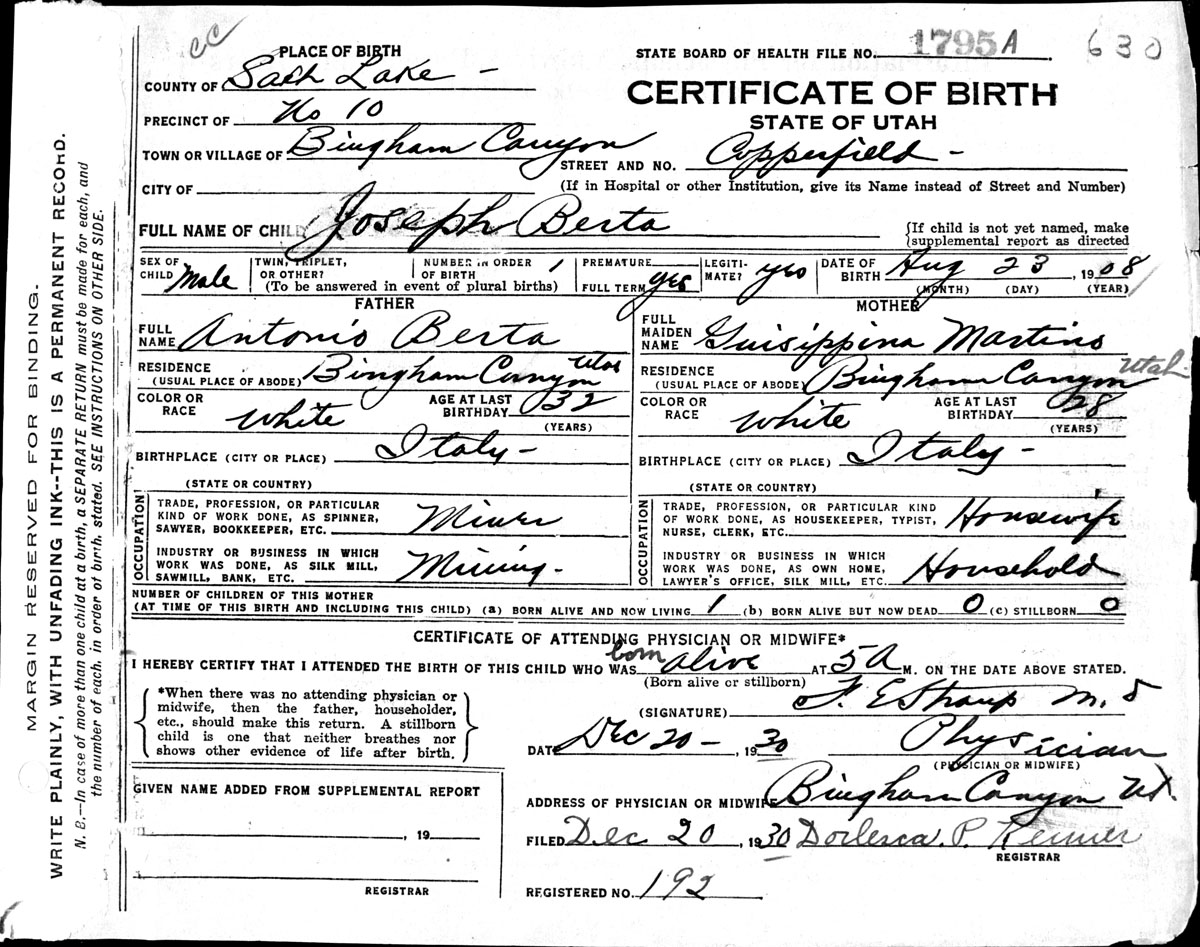 cc
PLACE OF BIRTH
STATE BOARD OF HEALTH FILE NO. 1795 A 630
COUNTY OF Salt Lake -
CERTIFICATE OF BIRTH
PRECINCT OF No 10
STATE OF UTAH
TOWN OR VILLAGE OF Bingham Canyon
STREET AND NO. Copperfield -
CITY OF
(If in Hospital or other Institution, give its Name instead of Street and Number)
FULL NAME OF CHILD Joseph Berta
{If child is not yet named, make
{supplemental report as directed
SEX OF CHILD Male
TWIN, TRIPLET, OR OTHER?
NUMBER IN ORDER OF BIRTH 1
(To be answered in event of plural births)
PREMATURE
FULL TERM yes
LEGITIMATE? yes
DATE OF BIRTH Aug 23, 1908
(MONTH) (DAY) (YEAR)
FATHER
FULL NAME Antonio Berta
RESIDENCE (USUAL PLACE OF ABODE) Bingham Canyon Utah
COLOR OR RACE White
AGE AT LAST BIRTHDAY 32 (YEARS)
BIRTHPLACE (CITY OR PLACE) Italy -
(STATE OR COUNTRY)
OCCUPATION
TRADE, PROFESSION, OR PARTICULAR
KIND OF WORK DONE, AS SPINNER,
SAWYER, BOOKKEEPER, ETC. Miner
INDUSTRY OR BUSINESS IN WHICH
WORK WAS DONE, AS SILK MILL,
SAWMILL, BANK, ETC. Mining -
MOTHER
FULL MAIDEN NAME Guisippina Martino
RESIDENCE (USUAL PLACE OF ABODE) Bingham Canyon Utah
COLOR OR RACE White
AGE AT LAST BIRTHDAY 28 (YEARS)
BIRTHPLACE (CITY OR PLACE) Italy -
(STATE OR COUNTRY)
OCCUPATION
TRADE, PROFESSION, OR PARTICULAR KIND
OF WORK DONE, AS HOUSEKEEPER, TYPIST,
NURSE, CLERK, ETC. Housewife
INDUSTRY OR BUSINESS IN WHICH
WORK WAS DONE, AS OWN HOME,
LAWYER'S OFFICE, SILK MILL, ETC. Household
NUMBER OF CHILDREN OF THIS MOTHER
(AT TIME OF THIS BIRTH AND INCLUDING THIS CHILD) (a) BORN ALIVE AND NOW LIVING 1 (b) BORN ALIVE BUT NOW DEAD 0 (c) STILLBORN 0
CERTIFICATE OF ATTENDING PHYSICIAN OR MIDWIFE*
I HEREBY CERTIFY THAT I ATTENDED THE BIRTH OF THIS CHILD WHO WAS born alive AT 5 A M. ON THE DATE ABOVE STATED.
(Born alive or stillborn)
*When there was no attending physician or
midwife, then the father, householder,
etc., should make this return. A stillborn
child is one that neither breathes nor
shows other evidence of life after birth.
(SIGNATURE) F. E Straup M. D
DATE Dec 20 -, 1930 Physician
(PHYSICIAN OR MIDWIFE)
GIVEN NAME ADDED FROM SUPPLEMENTAL REPORT
, 19
REGISTRAR
ADDRESS OF PHYSICIAN OR MIDWIFE Bingham Canyon Ut.
FILED Dec 20, 1930 P.
REGISTRAR
REGISTERED NO. 192
MARGIN RESERVED FOR BINDING.
WRITE PLAINLY, WITH UNFADING INK--THIS IS A PERMANENT RECORD.
N. B.--In case of more than one child at a birth, a SEPARATE RETURN must be made for each, and
the number of each, in order of birth, stated. SEE INSTRUCTIONS ON OTHER SIDE.